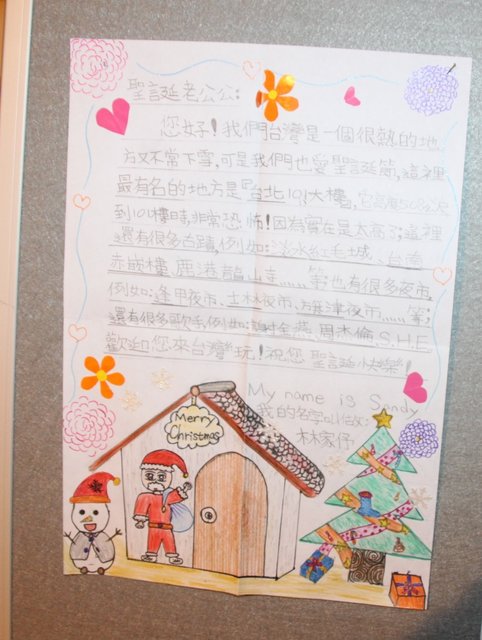 聖誕老公公:
您好!我們台灣是一個很熱的地
方又不常下雪,可是我們也愛聖誕節,這裡
最有名的地方是『台北101大樓』,它高
到101樓時,非常恐怖!因為實在是太高了;這裡
還有很多古蹟,例如:淡水紅毛城、台南
赤嵌樓、鹿港龍山寺......等;也有很多夜市,
例如:逢甲夜市、士林夜市、旗津夜市......等;
還有很多歌手,例如:謝金燕、周杰倫、S.H.E
歡迎您來台灣玩!祝您 聖誕快樂!
My name is Sandy
我的名字叫做:
林家伃
Merry
Christmas